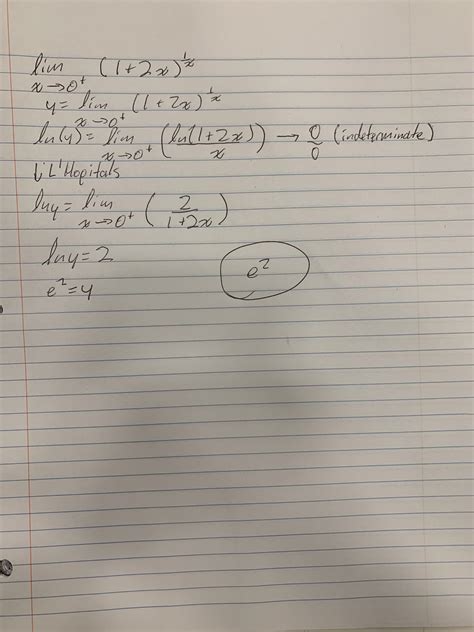 lim x→0⁺ (1+2x)^(1/x)
y = lim x→0⁺ (1+2x)^(1/x)
ln(y) = lim x→0⁺ (ln(1+2x)/x) → 0/0 (indeterminate)
↓ L'Hopitals
lny = lim x→0⁺ (2/(1+2x))
lny = 2
e² = y
e²